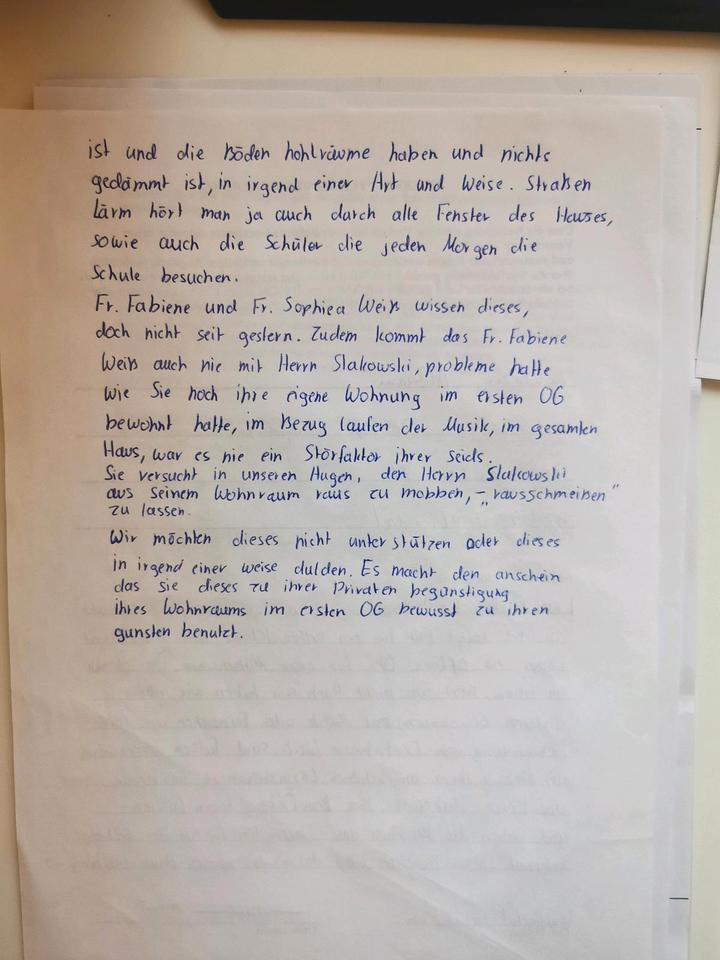 ist und die Böden hohlräume haben und nichts
gedämmt ist, in irgend einer Art und Weise. Straßen
Lärm hört man ja auch durch alle Fenster des Hauses,
sowie auch die Schüler die jeden Morgen die
Schule besuchen.
Fr. Fabiene und Fr. Sophiea Weiß wissen dieses,
doch nicht seit gestern. Zudem kommt das Fr. Fabiene
Weiß auch nie mit Herrn Slakowski, probleme hatte
wie Sie noch ihre eigene Wohnung im ersten OG
bewohnt hatte, im Bezug laufen der Musik, im gesamten
Haus, war es nie ein Störfaktor ihrer seids.
Sie versucht in unseren Augen, den Herrn Slakowski
aus seinem Wohnraum raus zu mobben, – „rausschmeißen"
zu lassen.
Wir möchten dieses nicht unterstützen oder dieses
in irgend einer weise dulden. Es macht den anschein
das sie dieses zu ihrer Privaten begünstigung
ihres Wohnraums im ersten OG bewusst zu ihren
gunsten benutzt.